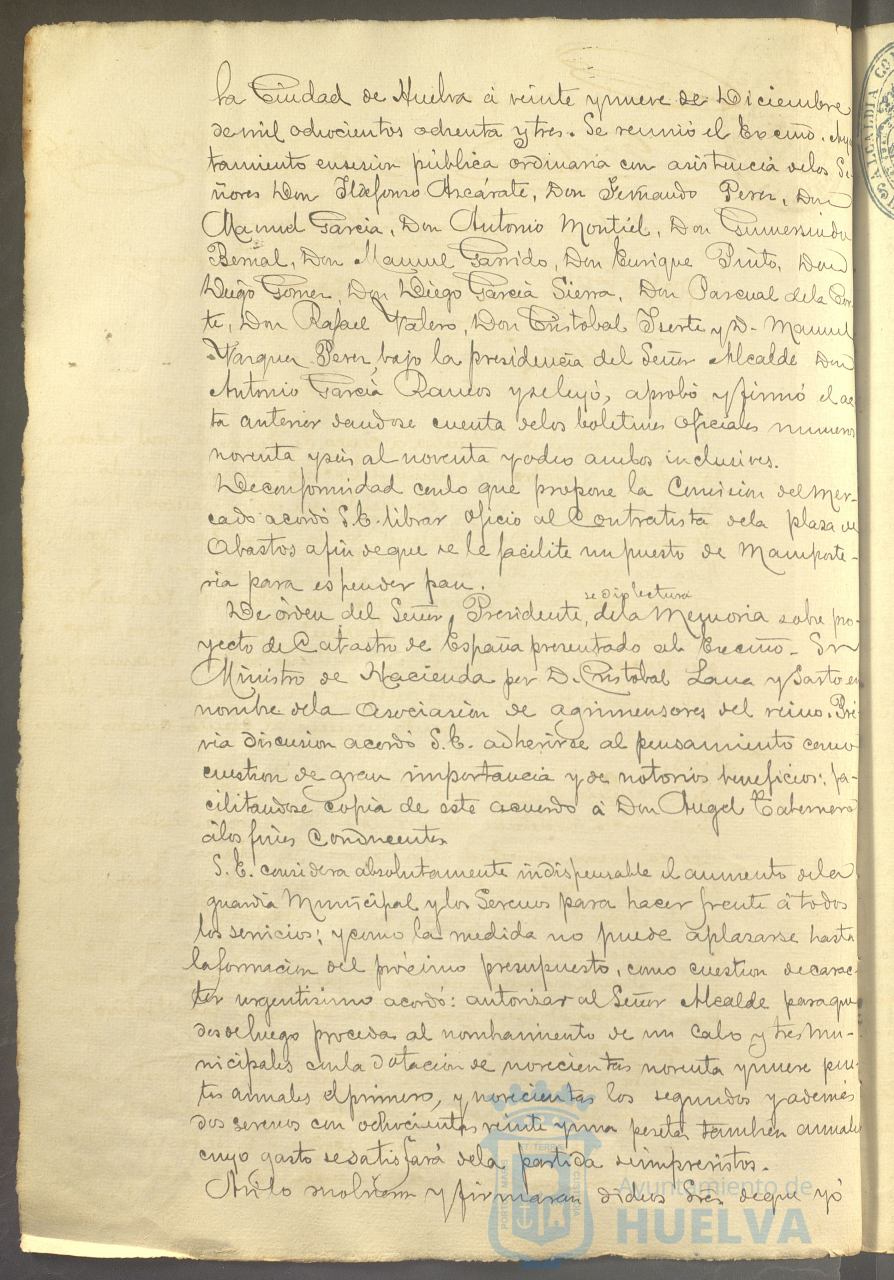 la Ciudad de Huelva á veinte y nueve de Diciembre
de mil ochocientos ochenta y tres. Se reunió el Excmo. Ayu
tamiento en sesion pública ordinaria con asistencia de los Se
ñores Don Ildefonso Azcárate, Don Fernando Perez, Don
Manuel Garcia, Don Antonio Montiel, Don Gumersindo
Bernal, Don Manuel Garrido, Don Enrique Pinto, Don
Diego Gomez, Don Diego Garcia Sierra, Don Pascual de la Cor
te, Don Rafael Valero, Don Cristobal Iserte y D. Manuel
Vazquez Perez, bajo la presidencia del Señor Alcalde Don
Antonio Garcia Ramos y se leyó, aprobó y firmó el ac
ta anterior dandose cuenta de los boletines oficiales numeros
noventa y seis al noventa y ocho ambos inclusives.
De conformidad con lo que propone la Comision del Mer-
cado acordó S.E. librar oficio al Contratista de la plaza de
Abastos a fin de que se le facilite un puesto de Mamposte-
ria para espender pan.
De órden del Señor Presidente, se dio lectura de la Memoria sobre pro-
yecto de Catastro de España presentado al Excmo. Sr
Ministro de Hacienda por D. Cristobal Lana y Sarto en
nombre de la Asociasión de agrimensores del reino. Pré
via discusion acordó S.E. adherirse al pensamiento como
cuestion de gran importancia y de notorios beneficios; fa-
cilitandose copia de este acuerdo á Don Angel Tabernero
á los fines Conducentes
S.E. considera absolutamente indispensable el aumento de la
guardia Municipal y los Serenos para hacer frente á todos
los servicios; y como la medida no puede aplazarse hasta
la formacion del prócimo presupuesto, como cuestion de carac-
ter urgentisimo acordó: autorizar al Señor Alcalde para que
desde luego proceda al nombramiento de un Cabo y tres Mu-
nicipales con la dotacion de novecientas noventa y nueve pese
tas anuales el primero, y novecientas los segundos y además
dos serenos con ochocientas veinte y una pesetas tambien anuales
cuyo gasto se satisfará de la partida de imprevistos.
Asi lo y firmaran dichos Sres. de que yó
Ayuntamiento de
HUELVA